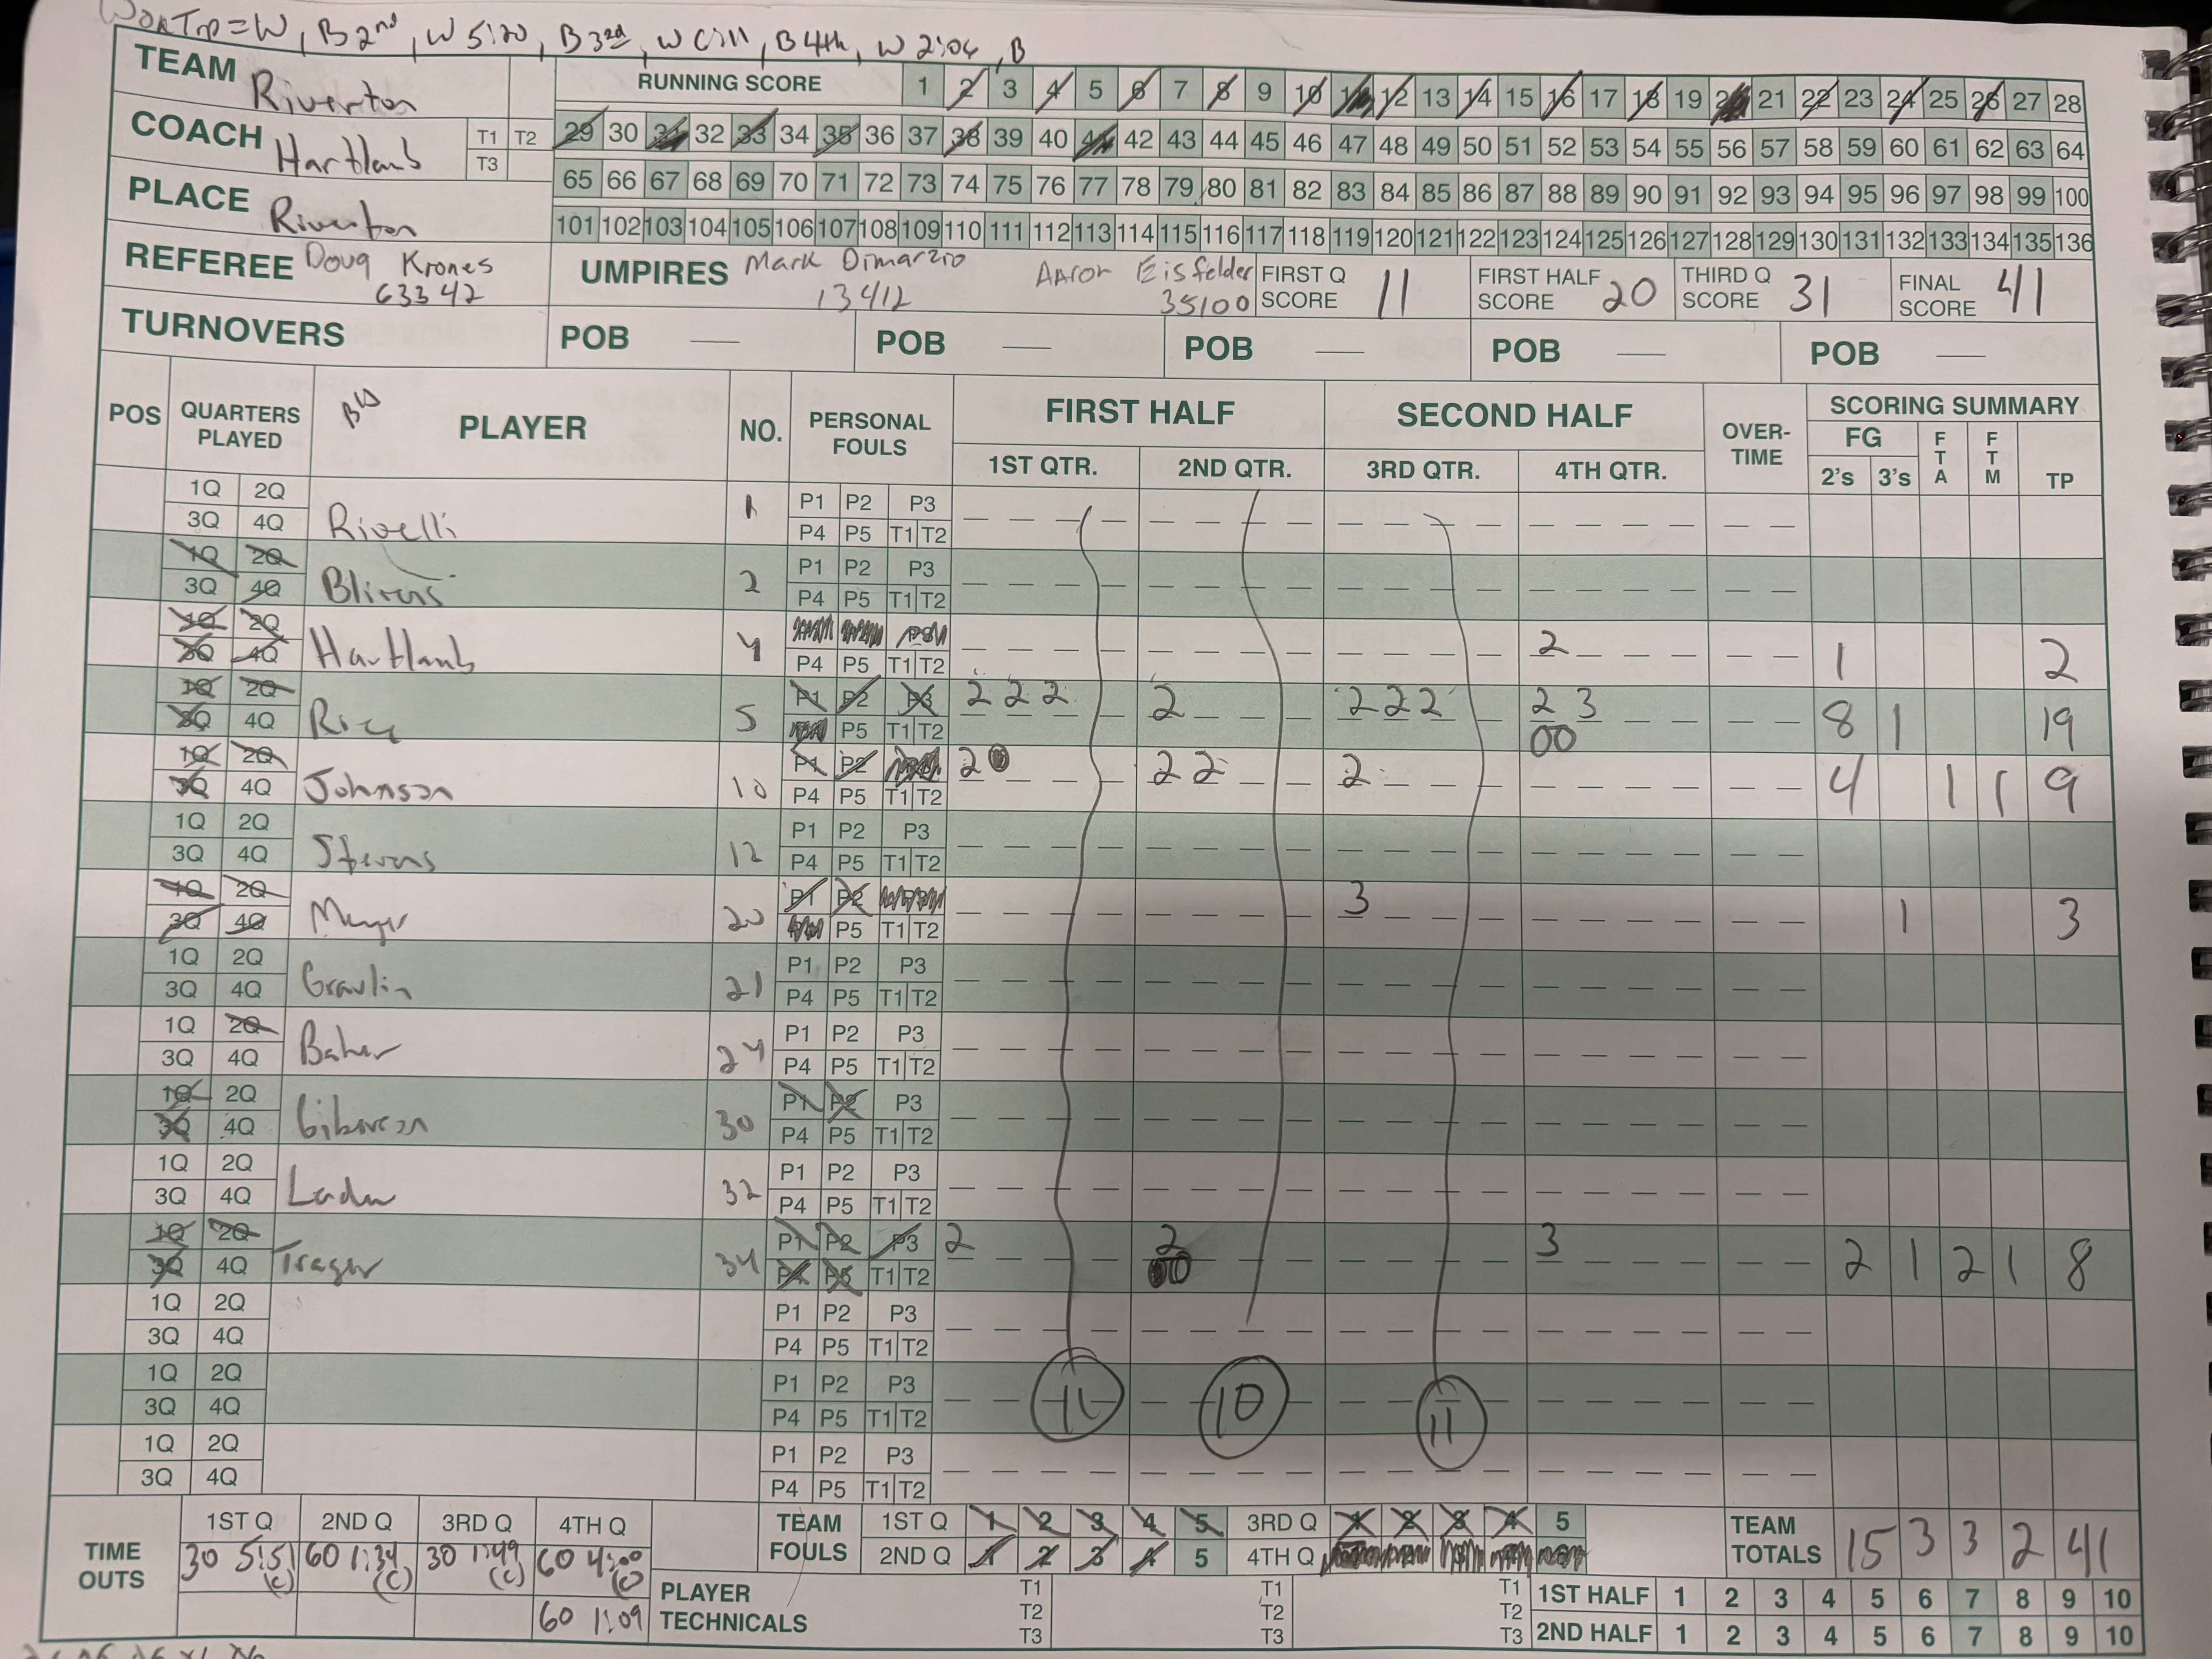 WonTip=W, B 2nd, W 5:20, B 3rd, W 6:11, B 4th, W 2:04, B
TEAM Riverton
COACH Hartlaub
T1 T2
T3
PLACE Riverton
REFEREE Doug Krones
63342
RUNNING SCORE 1 2 3 4 5 6 7 8 9 10 11 12 13 14 15 16 17 18 19 20 21 22 23 24 25 26 27 28
29 30 31 32 33 34 35 36 37 38 39 40 41 42 43 44 45 46 47 48 49 50 51 52 53 54 55 56 57 58 59 60 61 62 63 64
65 66 67 68 69 70 71 72 73 74 75 76 77 78 79 80 81 82 83 84 85 86 87 88 89 90 91 92 93 94 95 96 97 98 99 100
101 102 103 104 105 106 107 108 109 110 111 112 113 114 115 116 117 118 119 120 121 122 123 124 125 126 127 128 129 130 131 132 133 134 135 136
UMPIRES Mark Dimarzio Aaron Eisfelder
13412 35100
FIRST Q SCORE 11
FIRST HALF SCORE 20
THIRD Q SCORE 31
FINAL SCORE 41
TURNOVERS POB POB POB POB POB
POS QUARTERS PLAYED PLAYER NO. PERSONAL FOULS FIRST HALF SECOND HALF OVER-TIME SCORING SUMMARY
1ST QTR. 2ND QTR. 3RD QTR. 4TH QTR. FG FTA FTM TP
2's 3's
1Q 2Q Rivelli 1 P1 P2 P3
3Q 4Q P4 P5 T1 T2
1Q 2Q 2 P1 P2 P3
3Q 4Q P4 P5 T1 T2
1Q 2Q Hartlaub 4 P1 P2 P3 2 1 2
3Q 4Q P4 P5 T1 T2
1Q 2Q 5 P1 P2 P3 2 2 2 2 2 2 2 2 3 8 1 19
3Q 4Q P4 P5 T1 T2 00
1Q 2Q Johnson 10 P1 P2 P3 2 0 2 2 2 4 1 1 9
3Q 4Q P4 P5 T1 T2
1Q 2Q Stevens 12 P1 P2 P3
3Q 4Q P4 P5 T1 T2
1Q 2Q Meyer 20 P1 P2 P3 3 1 3
3Q 4Q P4 P5 T1 T2
1Q 2Q 21 P1 P2 P3
3Q 4Q P4 P5 T1 T2
1Q 2Q 24 P1 P2 P3
3Q 4Q P4 P5 T1 T2
1Q 2Q 30 P1 P2 P3
3Q 4Q P4 P5 T1 T2
1Q 2Q 32 P1 P2 P3
3Q 4Q P4 P5 T1 T2
1Q 2Q Trager 34 P1 P2 P3 2 2 3 2 1 2 1 8
3Q 4Q P4 P5 T1 T2 00
1Q 2Q P1 P2 P3
3Q 4Q P4 P5 T1 T2
1Q 2Q P1 P2 P3 11 10 11
3Q 4Q P4 P5 T1 T2
1Q 2Q P1 P2 P3
3Q 4Q P4 P5 T1 T2
TIME OUTS 1ST Q 2ND Q 3RD Q 4TH Q
30 5:51 (c) 60 1:34 (c) 30 1:49 (c) 60 4:00 (c)
60 1:09
TEAM FOULS 1ST Q 1 2 3 4 5 3RD Q 1 2 3 4 5
2ND Q 1 2 3 4 5 4TH Q 1 2 3 4 5
TEAM TOTALS 15 3 3 2 41
PLAYER TECHNICALS T1 T2 T3 T1 T2 T3 T1 T2 T3
1ST HALF 1 2 3 4 5 6 7 8 9 10
2ND HALF 1 2 3 4 5 6 7 8 9 10